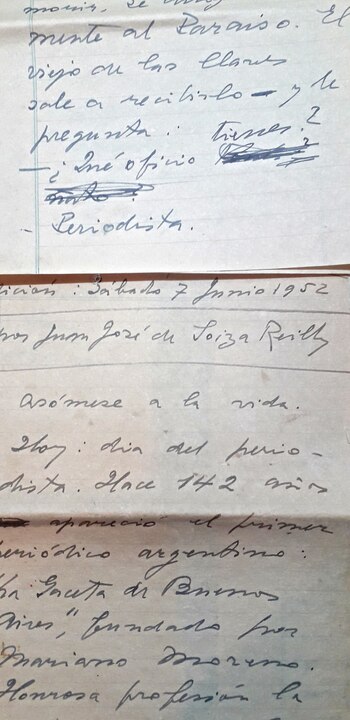 morir, se
mente al Paraíso. El
viejo de las llaves
sale a recibirlo — y le
pregunta:
— ¿Qué oficio tienes?
- Periodista.
ición: Sábado 7 Junio 1952
por Juan José de Soiza Reilly
Asómese a la vida.
Hoy: día del perio-
dista. Hace 142 años
apareció el primer
periódico argentino:
"La Gaceta de Buenos
Aires", fundado por
Mariano Moreno.
Honrosa profesión la